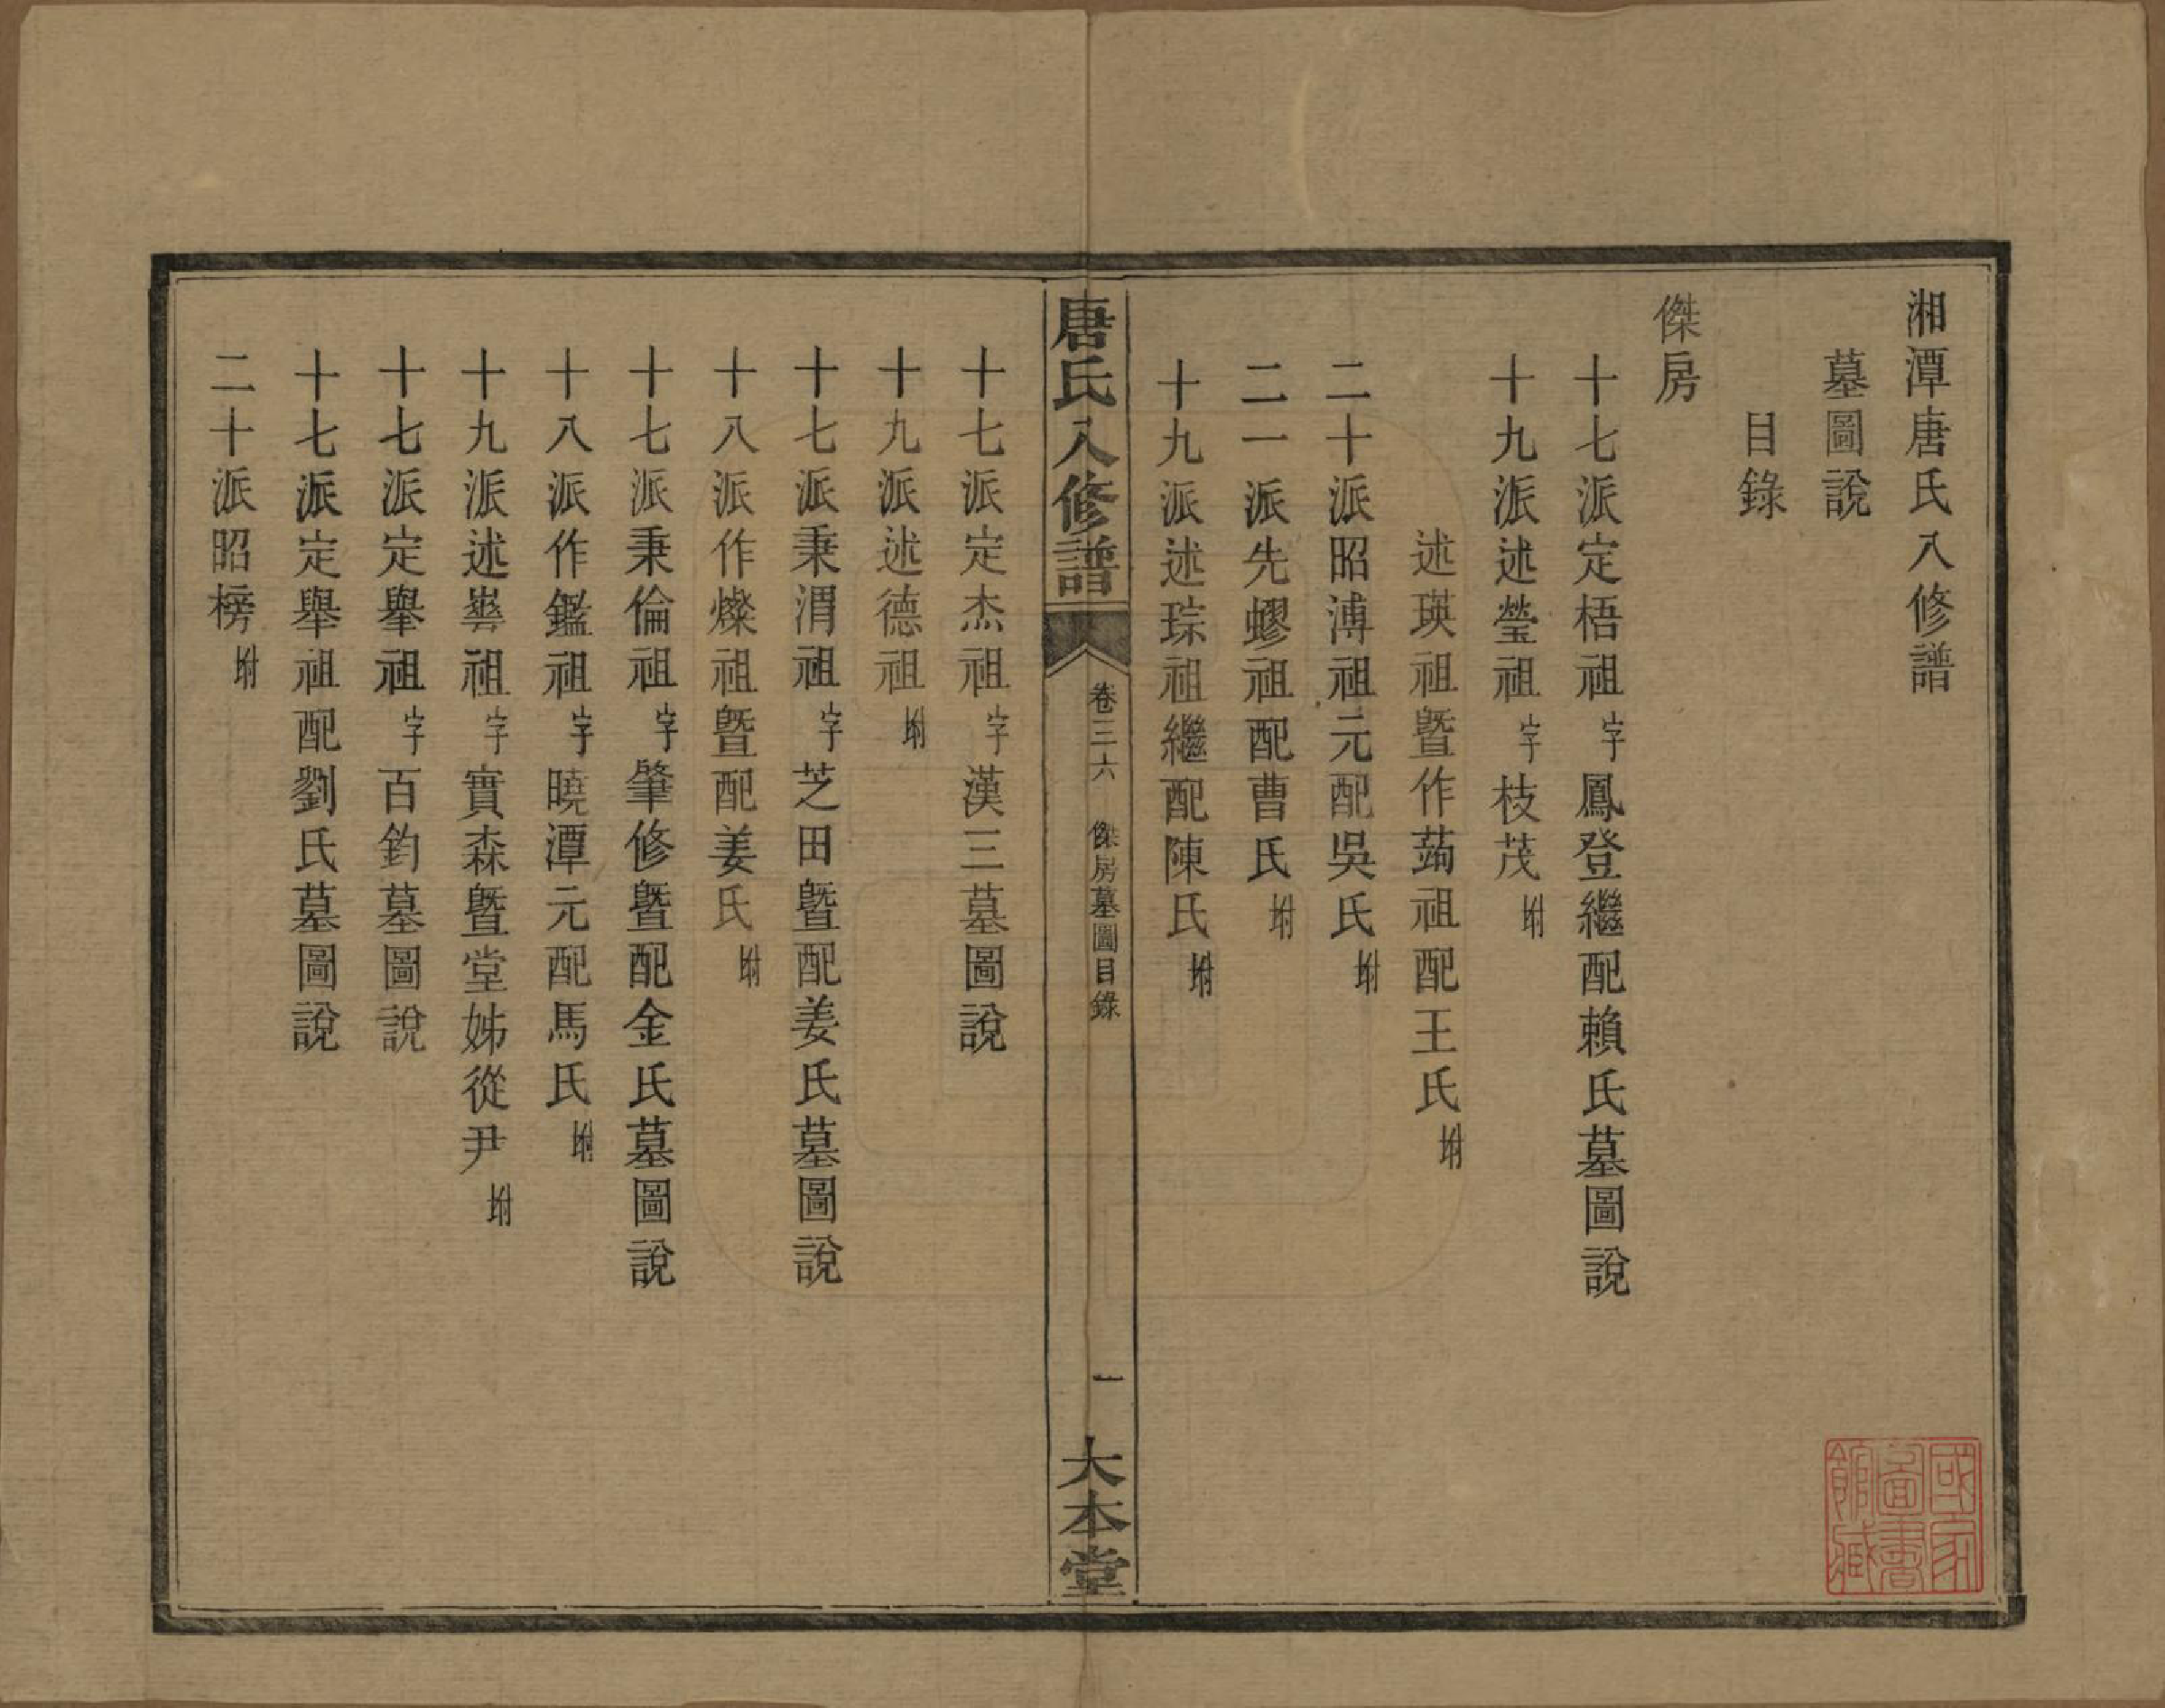 湘潭唐氏八修譜
墓圖說
目錄
傑房
十七派定梧祖字鳳登繼配賴氏墓圖說
十九派述瑩祖字枝茂附
述瑛祖暨作蒟祖配王氏附
二十派昭溥祖元配吳氏附
二一派先蟉祖配曹氏附
十九派述琮祖繼配陳氏附
唐氏八修譜
卷三六 傑房墓圖目錄
一
大本堂
十七派定杰祖字漢三墓圖說
十九派述德祖附
十七派秉渭祖字芝田暨配姜氏墓圖說
十八派作燦祖暨配姜氏附
十七派秉倫祖字肇修暨配金氏墓圖說
十八派作鑑祖字曉潭元配馬氏附
十九派述祖字實森暨堂姊從尹附
十七派定舉祖字百鈞墓圖說
十七派定舉祖配劉氏墓圖說
二十派昭榜附
國家
圖書
館藏